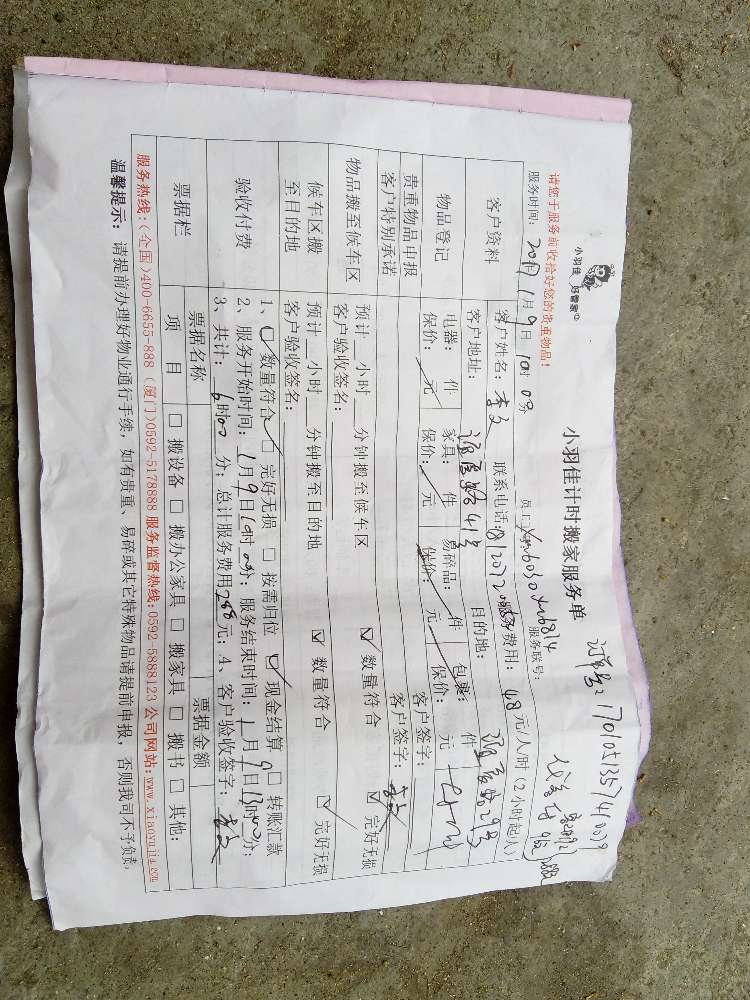 订单号:170105135740039
小羽佳 好管家
小羽佳计时搬家服务单
请您于服务前收拾好您的贵重物品!
服务时间: 2017年1月9日10时00分 员工: 服务联号:
客户资料 客户姓名: 联系电话: 费用: 48元/人时(2小时起/人)
客户地址: 41号 目的地: 29号
物品登记 电器: 件 家具: 件 易碎品: 件 包裹: 件
保价: 元 保价: 元 保价: 元 保价: 元
贵重物品申报 客户签字:
客户特别承诺 客户签字:
物品搬至候车区 预计 小时 分钟搬至候车区 ☑ 数量符合 ☑ 完好无损
客户验收签名:
候车区搬至目的地 预计 小时 分钟搬至目的地 ☑ 数量符合 ☑ 完好无损
客户验收签名:
验收付费 1、☑ 数量符合 ☑ 完好无损 □ 按需归位 ☑ 现金结算 □ 转账汇款
2、服务开始时间: 1月9日10时00分; 服务结束时间: 1月9日13时00分;
3、共计: 6时00分; 总计服务费用288元; 4、客户验收签字:
票据栏 票据名称 票据金额
项目 □ 搬设备 □ 搬办公家具 □ 搬家具 □ 搬书 □ 其他:
服务热线:(全国)400-6655-888 (厦门)0592-5178888 服务监督热线:0592-5888123 公司网站:www.xiaoyujia.com
温馨提示: 请提前办理好物业通行手续, 如有贵重、易碎或其它特殊物品请提前申报, 否则我司不予负责.